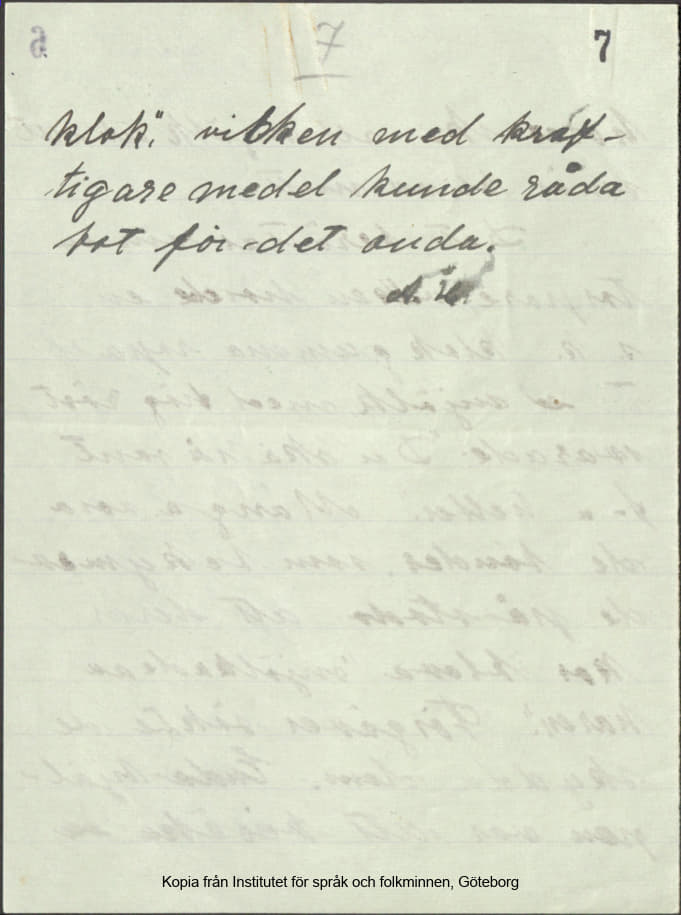 7 7
klok", vilken med kraf-
tigare medel kunde råda
bot för det onda.
Kopia från Institutet för språk och folkminnen, Göteborg